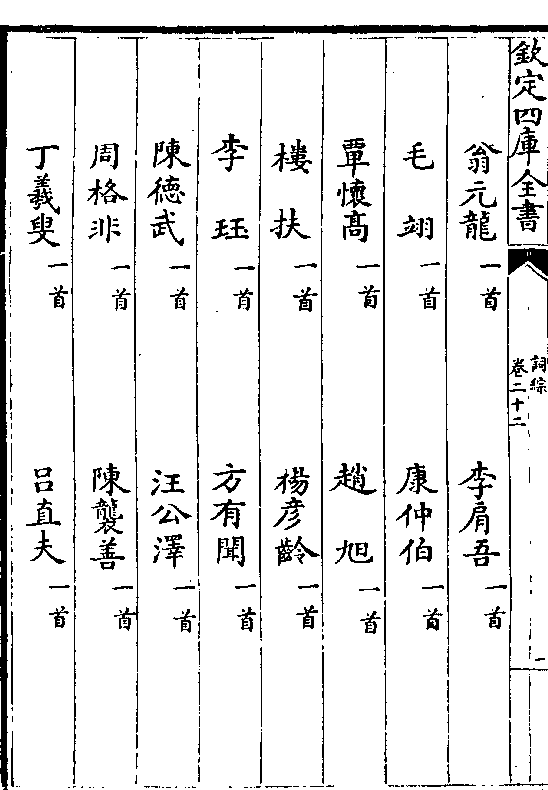 欽定四庫全書
詞綜
卷二十二
翁元龍一首　李肩吾一首
毛翊一首　康仲伯一首
覃懷高一首　趙旭一首
樓扶一首　楊彦齡一首
李珏一首　方有聞一首
陳德武一首　汪公澤一首
周格非一首　陳襲善一首
丁羲叟一首　吕直夫一首